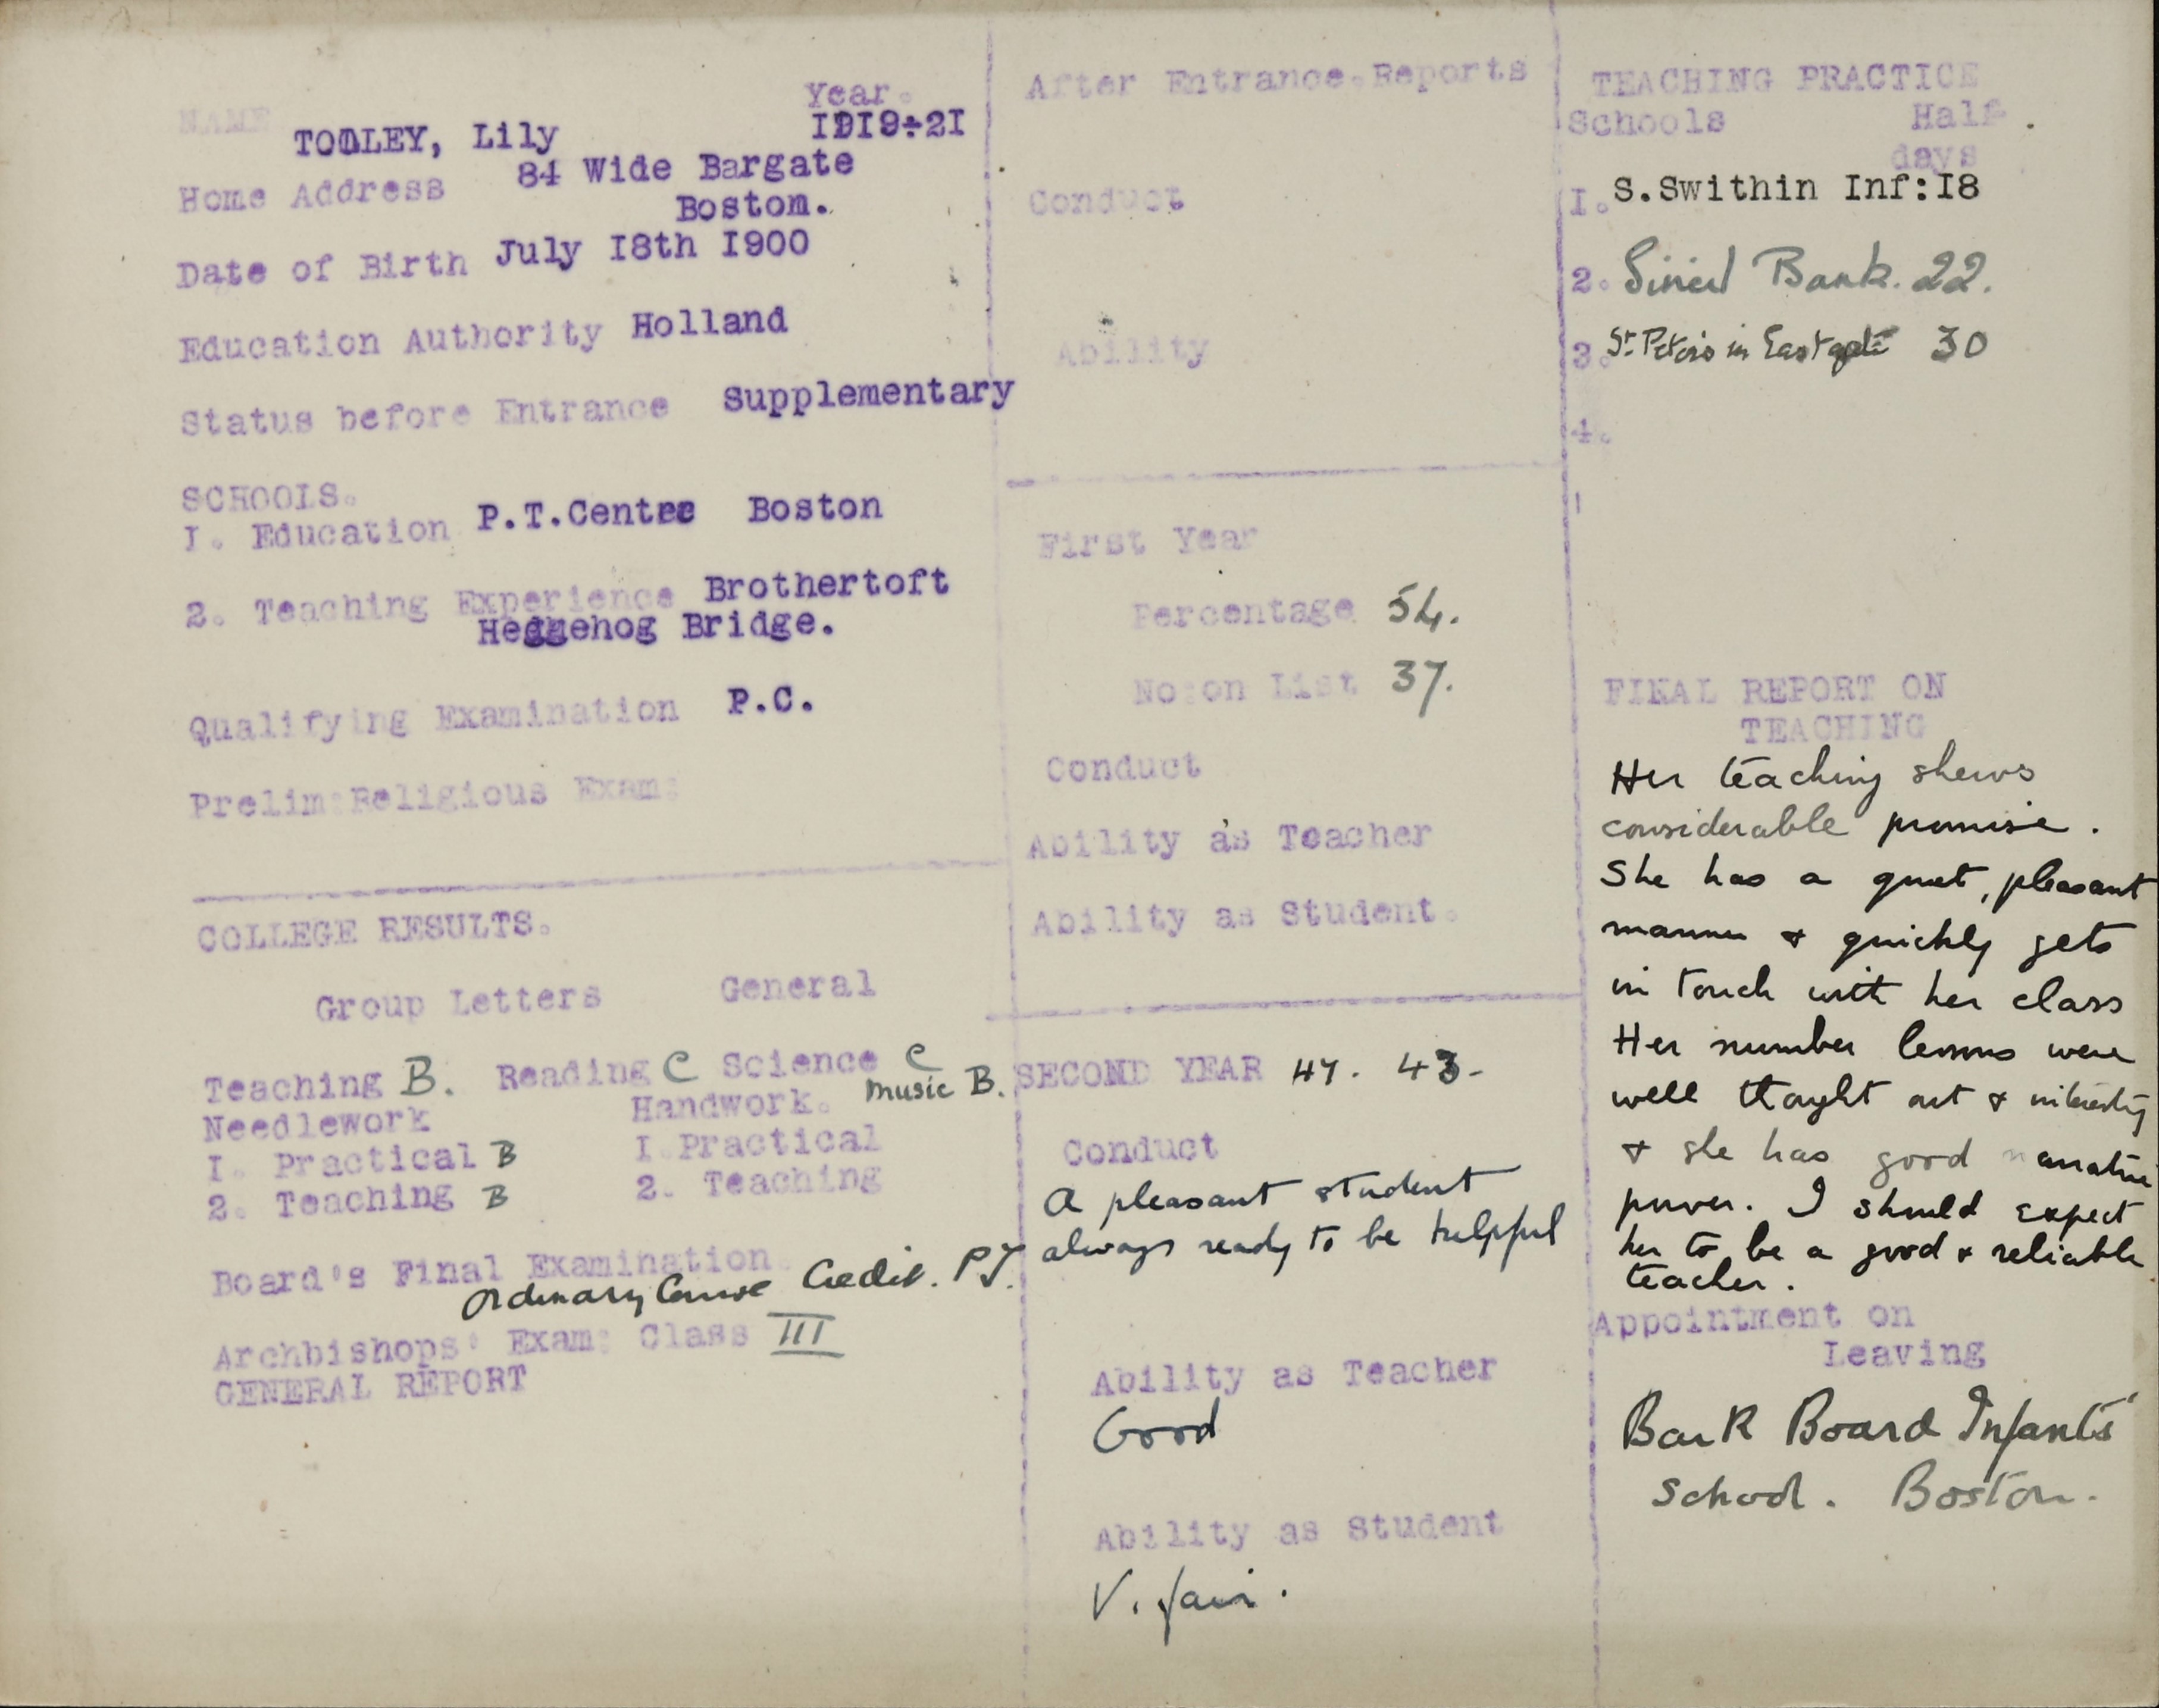 NAME TOOLEY, Lily
Year. I9I9÷2I
Home Address 84 Wide Bargate
Boston.
Date of Birth July I8th I900
Education Authority Holland
Status before Entrance Supplementary
SCHOOLS.
I. Education P.T.Centre Boston
2. Teaching Experience Brothertoft
Hedgehog Bridge.
Qualifying Examination P.C.
Prelim:Religious Exam:
COLLEGE RESULTS.
Group Letters General
Teaching B. Reading C Science C
Music B.
Needlework Handwork.
I. Practical B I.Practical
2. Teaching B 2. Teaching
Board's Final Examination.
Ordinary Course Credit. PJ.
Archbishops' Exam: Class III
GENERAL REPORT
After Entrance.Reports
Conduct
Ability
First Year
Percentage 54.
No:on List 37.
Conduct
Ability as Teacher
Ability as Student.
SECOND YEAR 47. 43.
Conduct
A pleasant student
always ready to be helpful
Ability as Teacher
Good
Ability as Student
V. fair.
TEACHING PRACTICE
Schools Half
days
I. S.Swithin Inf:I8
2. Sincil Bank. 22.
3. St. Peter's in Eastgate 30
4.
FINAL REPORT ON
TEACHING
Her teaching shews
considerable promise.
She has a quiet, pleasant
manner & quickly gets
in touch with her class
Her number lessons were
well thought out & interesting
& she has good narrative
power. I should expect
her to be a good & reliable
teacher.
Appointment on
Leaving
Bark Board Infants'
School. Boston.